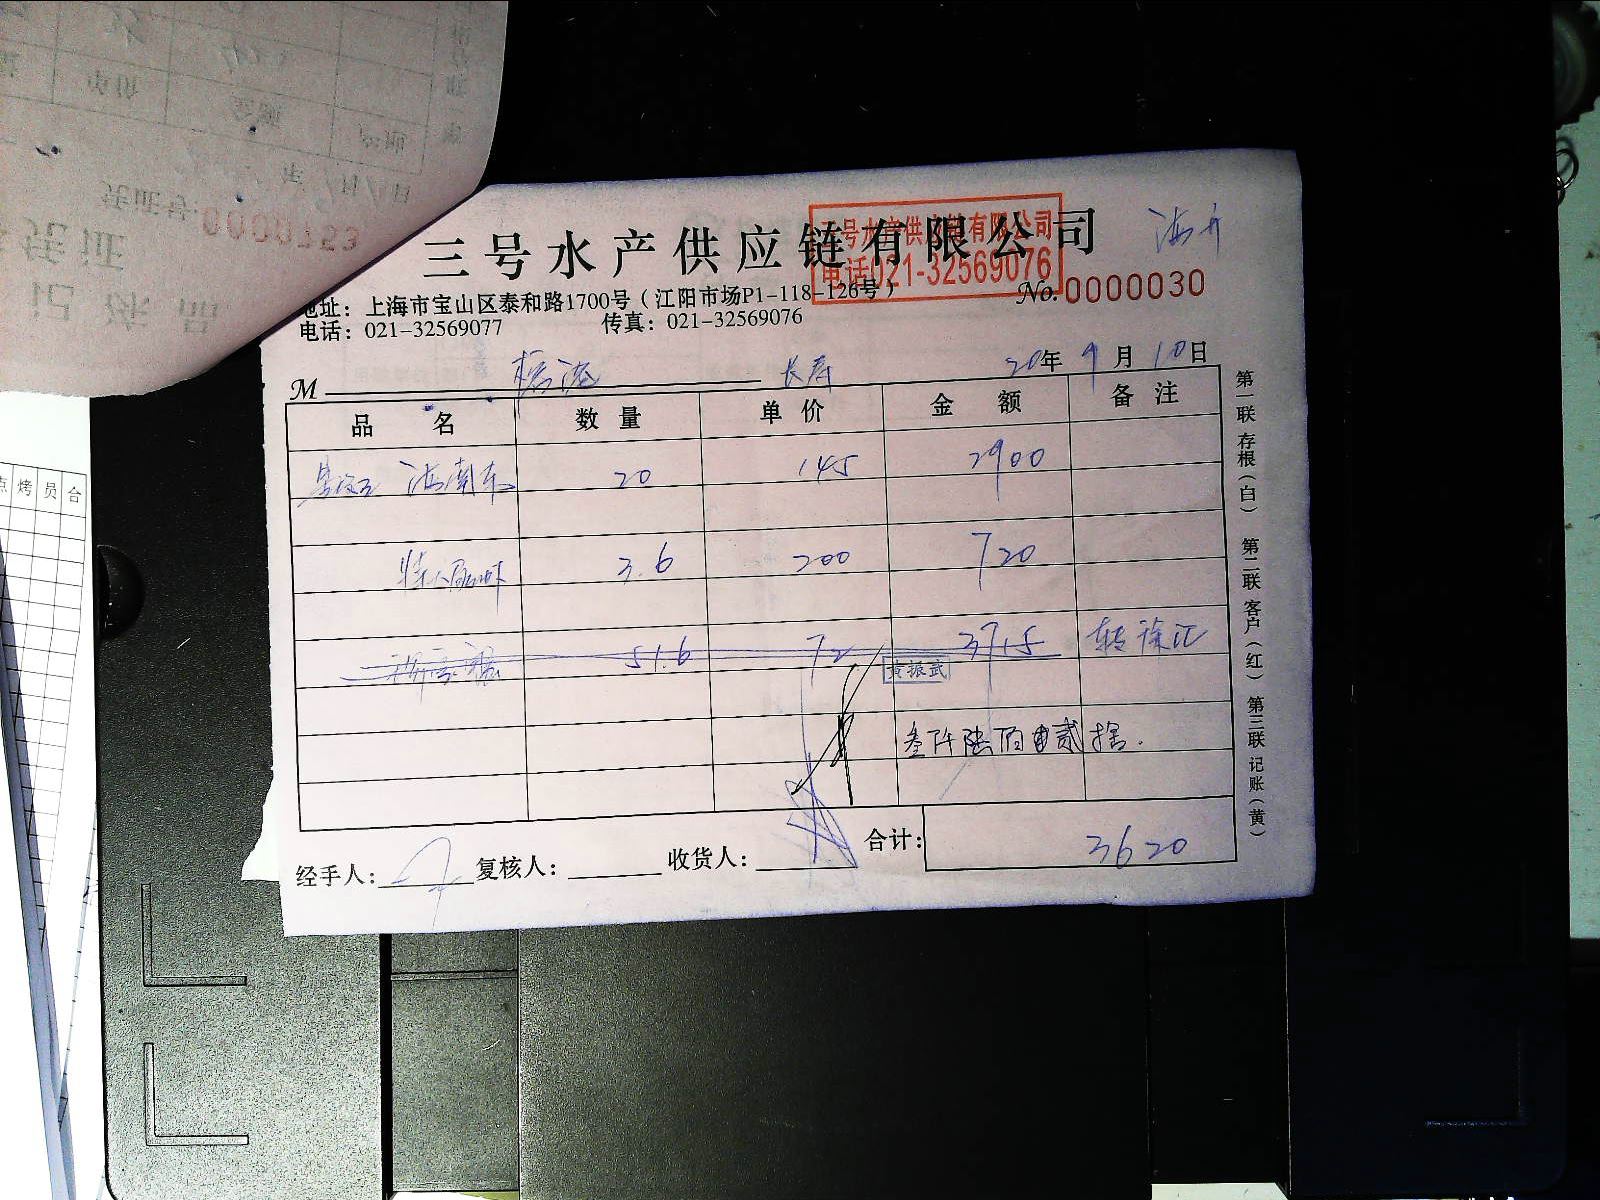 三号水产供应链有限公司
三号水产供应链有限公司
电话021-32569076
No.0000030
地址：上海市宝山区泰和路1700号（江阳市场P1-118-126号）
电话：021-32569077 传真：021-32569076
M 长寿 20年9月10日
品名 数量 单价 金额 备注
海南东 20 145 2900
3.6 200 720
51.6 72 3715 转徐汇
黄振武
叁仟陆佰贰拾.
合计： 3620
经手人： 复核人： 收货人：
第一联 存根（白） 第二联 客户（红） 第三联 记账（黄）
0000153
点 烤 员 台